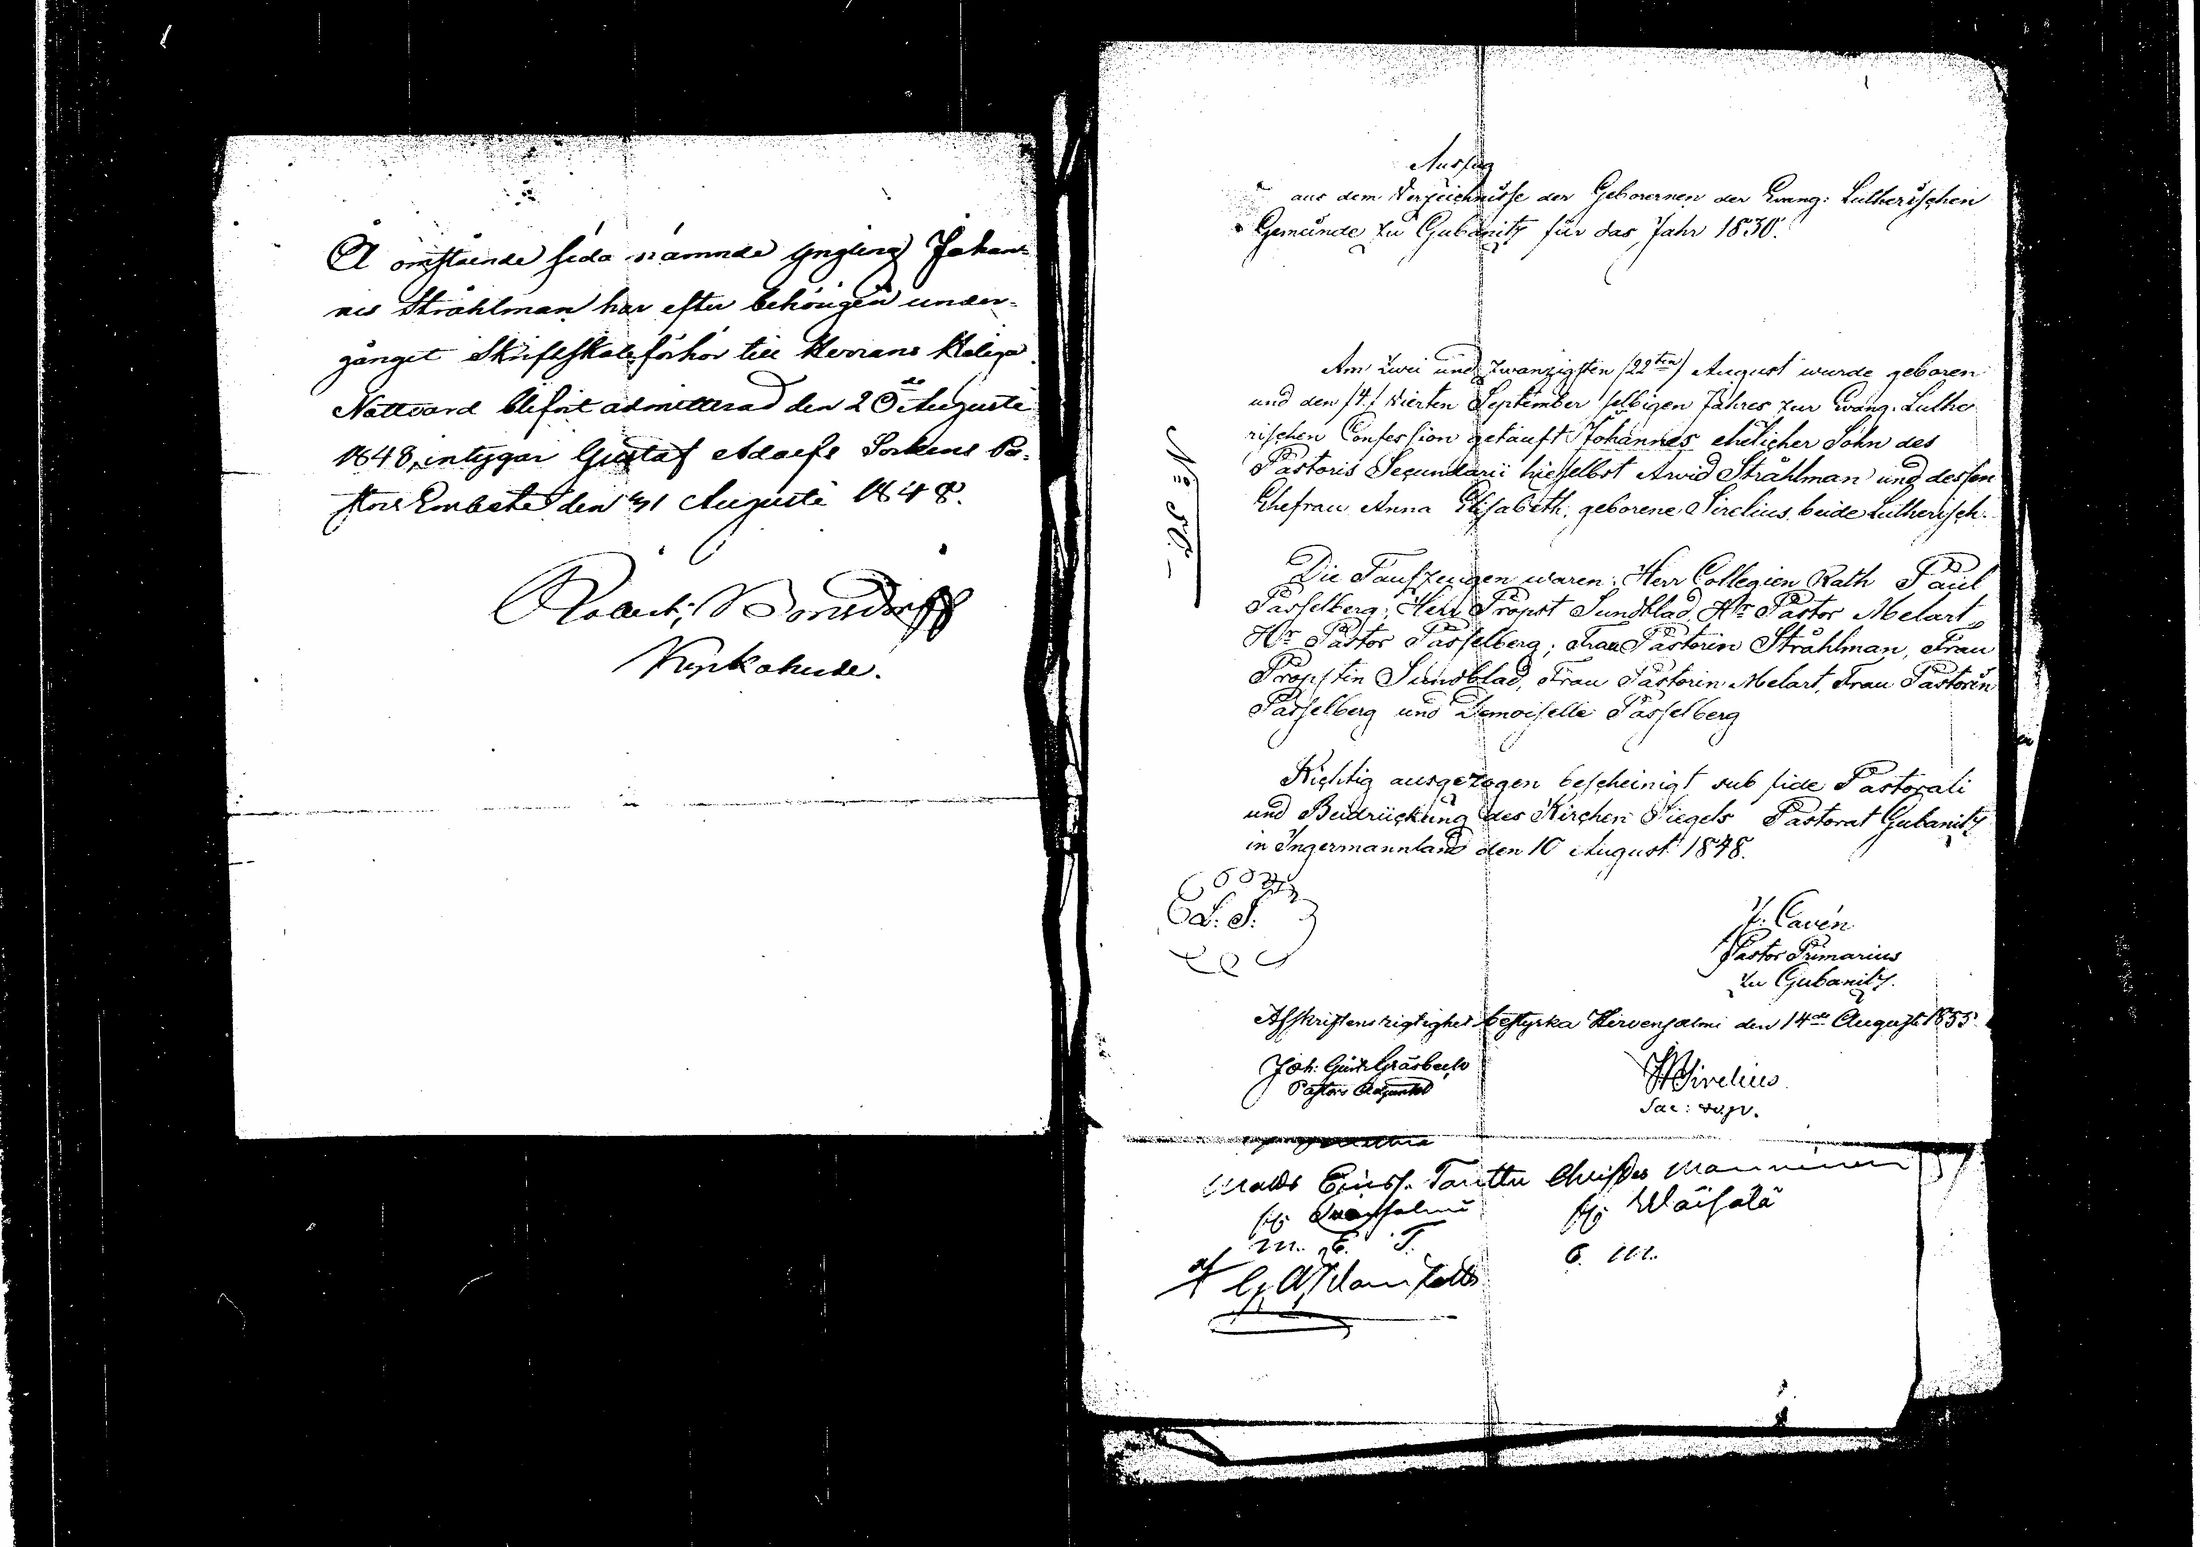 Å omstående sida nämnde Yngling Johan=
nes Stråhlman har efter behörigen under=
gånget Skriftskoleförhör till Herrans Heliga
Nattvard blifvit admitterad den 20de Augusti
1848, intygar Gustaf Adolfs Sockens Pa=
stors Embete den 31 Augusti 1848.
Robert Bonsdorff
Kyrkoherde.
Auszug
aus dem Verzeichnisse der Geborernen der Evang: Lutherischen
Gemeinde zu Gubanitz für das Jahr 1830.
Am zwei und zwanzigsten (22ten) August wurde geboren
und den (4.) vierten September selbigen Jahres zur Evang. Luthe
rischen Confession getauft Johannes ehelicher Sohn des
Pastoris Secundarii hieselbst Arwid Stråhlman und dessen
Ehefrau Anna Elisabeth, geborene Sirelius, beide Lutherisch.
Die Taufzeugen waren: Herr Collegien Rath Paul
Passelberg; Herr Propst Sundblad, Hr Pastor Melart,
Hr Pastor Passelberg; Frau Pastorin Stråhlman, Frau
Propstin Sundblad, Frau Pastorin Melart, Frau Pastorin
Passelberg und Demoiselle Passelberg
Richtig ausgezogen bescheinigt sub fide Pastorali
und Beidrückung des Kirchen Siegels Pastorat Gubanitz
in Ingermannland den 10 August 1848.
L. S.
J. Cavén
Pastor Primarius
zu Gubanitz.
Afskriftens rigtighet bestyrka Hirvensalmi den 14de Augusti 1855.
Joh: Gust: Gråsbeck
Pastors Adjunkt
Sirelius
Sac:
Mats Tanttu Christer Manninen
fr. fr. Wäisälä
M. E. T. C. M.
af